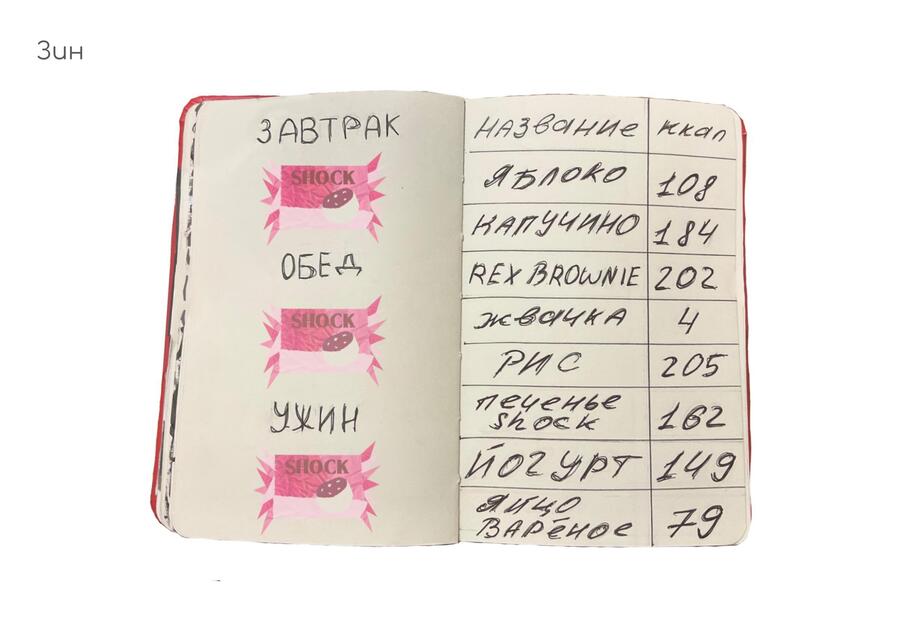 Зин
ЗАВТРАК
SHOCK
ОБЕД
SHOCK
УЖИН
SHOCK
НАЗвание ккал
ЯБЛОКО 108
КАПУЧИНО 184
REX BROWNIE 202
жвачка 4
РИС 205
печенье
shock 162
ЙОГУРТ 149
ЯЙЦО
ВАРёНОЕ 79